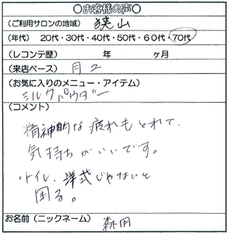 ○お客様の声○
(ご利用サロンの地域) 狭山
(年代) 20代・30代・40代・50代・60代 70代
(レコンテ歴) 年 ヶ月
(来店ペース) 月2
(お気に入りのメニュー・アイテム)
ミルクパウダー
(コメント)
精神的な疲れもとれて、
気持ちがいいです。
トイレ、洋式じゃないと
困る。
お名前(ニックネーム) 森田